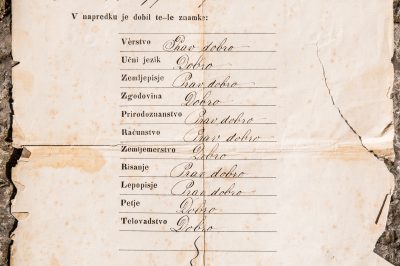 V napredku je dobil te-le znamke:
Vêrstvo Prav dobro
Učni jezik Dobro
Zemljepisje Prav dobro
Zgodovina Dobro
Prirodoznanstvo Prav dobro
Računstvo Prav dobro
Zemljemerstvo Dobro
Risanje Prav dobro
Lepopisje Prav dobro
Petje Dobro
Telovadstvo Dobro